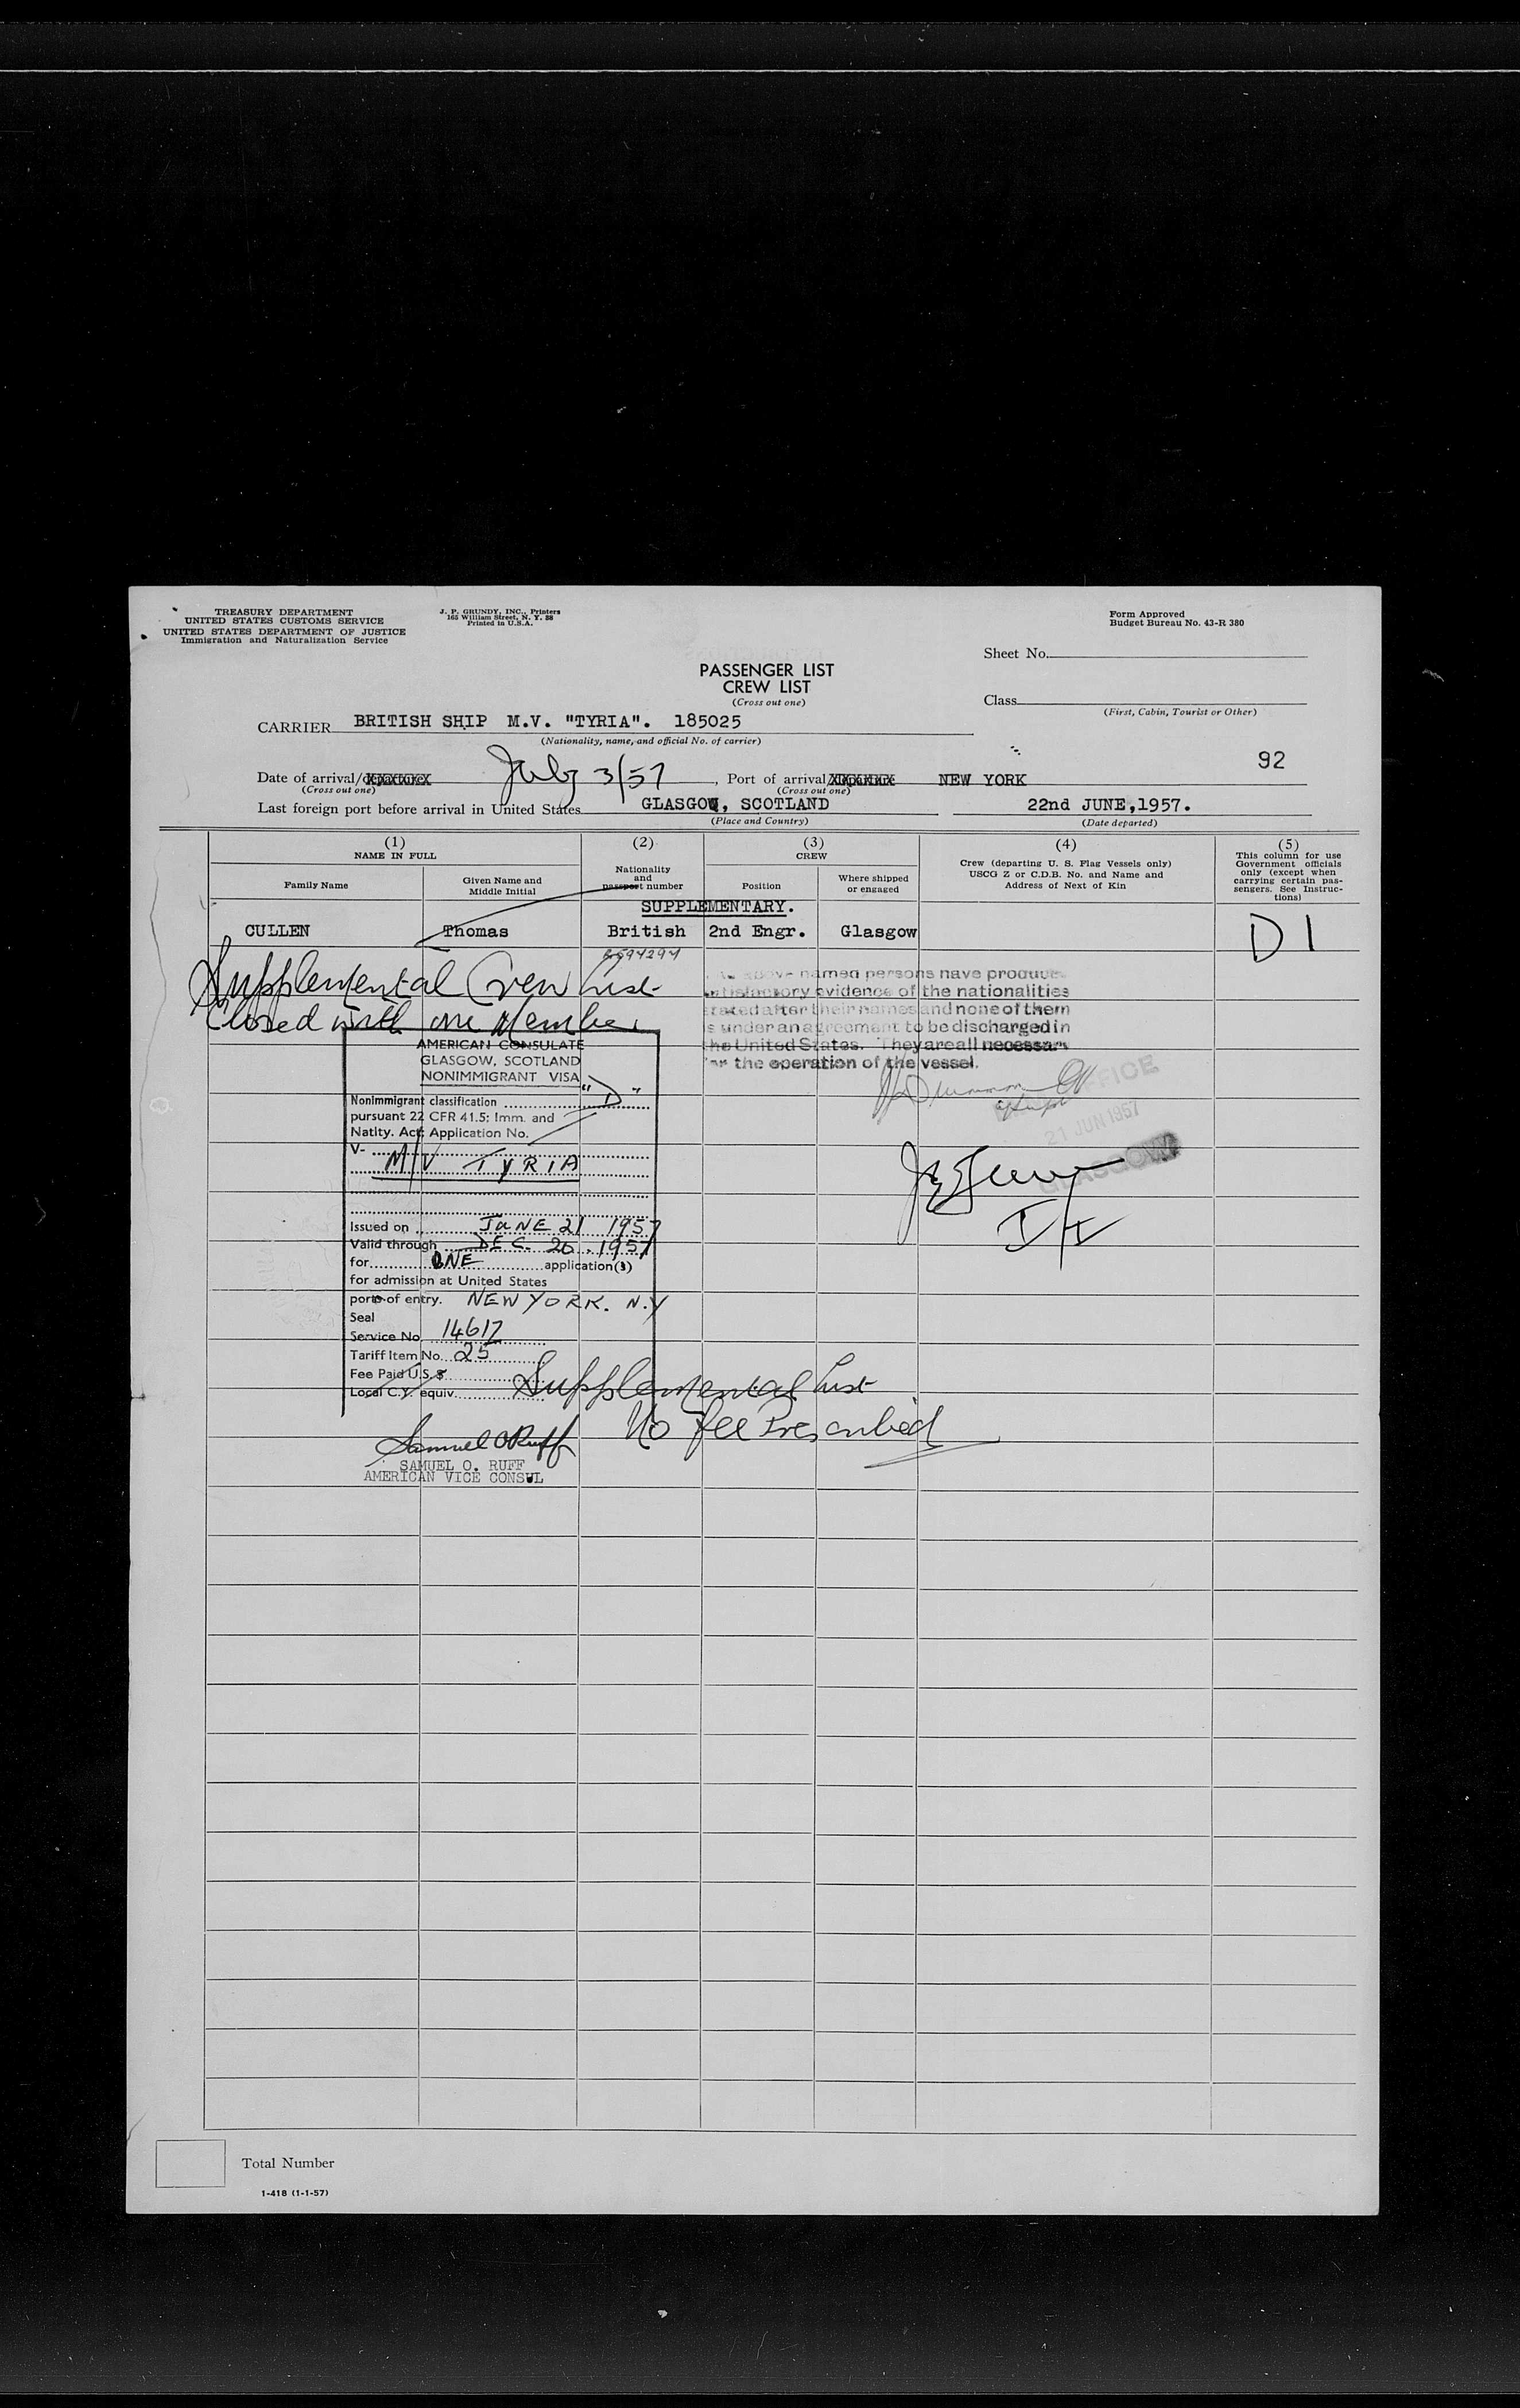 TREASURY DEPARTMENT
UNITED STATES CUSTOMS SERVICE
UNITED STATES DEPARTMENT OF JUSTICE
Immigration and Naturalization Service
J. P. GRUNDY, INC., Printers
165 William Street, N. Y. 38
Printed in U.S.A.
Form Approved
Budget Bureau No. 43-R 380
Sheet No.
PASSENGER LIST
CREW LIST
(Cross out one)
Class
(First, Cabin, Tourist or Other)
CARRIER BRITISH SHIP M.V. "TYRIA". 185025
(Nationality, name, and official No. of carrier)
92
Date of arrival/departure July 3/57, Port of arrival NEW YORK
(Cross out one) (Cross out one)
Last foreign port before arrival in United States GLASGOW, SCOTLAND 22nd JUNE,1957.
(Place and Country) (Date departed)
(1) (2) (3) (4) (5)
NAME IN FULL
Family Name
Given Name and
Middle Initial
Nationality
and
passport number
CREW
Position
Where shipped
or engaged
Crew (departing U. S. Flag Vessels only)
USCG Z or C.D.B. No. and Name and
Address of Next of Kin
This column for use
Government officials
only (except when
carrying certain pas-
sengers. See Instruc-
tions)
SUPPLEMENTARY.
CULLEN Thomas British 2nd Engr. Glasgow D 1
Supplemental Crew List
Closed with one Member
above named persons have produce
satisfactory evidence of the nationalities
stated after their names and none of them
is under an agreement to be discharged in
the United States. They are all necessary
for the operation of the vessel.
OFFICE
21 JUN 1957
GLASGOW
AMERICAN CONSULATE
GLASGOW, SCOTLAND
NONIMMIGRANT VISA
Nonimmigrant classification "D"
pursuant 22 CFR 41.5; Imm. and
Natlty. Act; Application No.
V-
M/V TYRIA
Issued on JUNE 21 1957
Valid through DEC. 20, 1957
for ONE application(s)
for admission at United States
port of entry. NEW YORK. N.Y
Seal
Service No. 14617
Tariff Item No. 25
Fee Paid U.S. $
Local C.Y. equiv.
Supplemental List
No fee Prescribed
Samuel O Ruff
SAMUEL O. RUFF
AMERICAN VICE CONSUL
Total Number
I-418 (1-1-57)